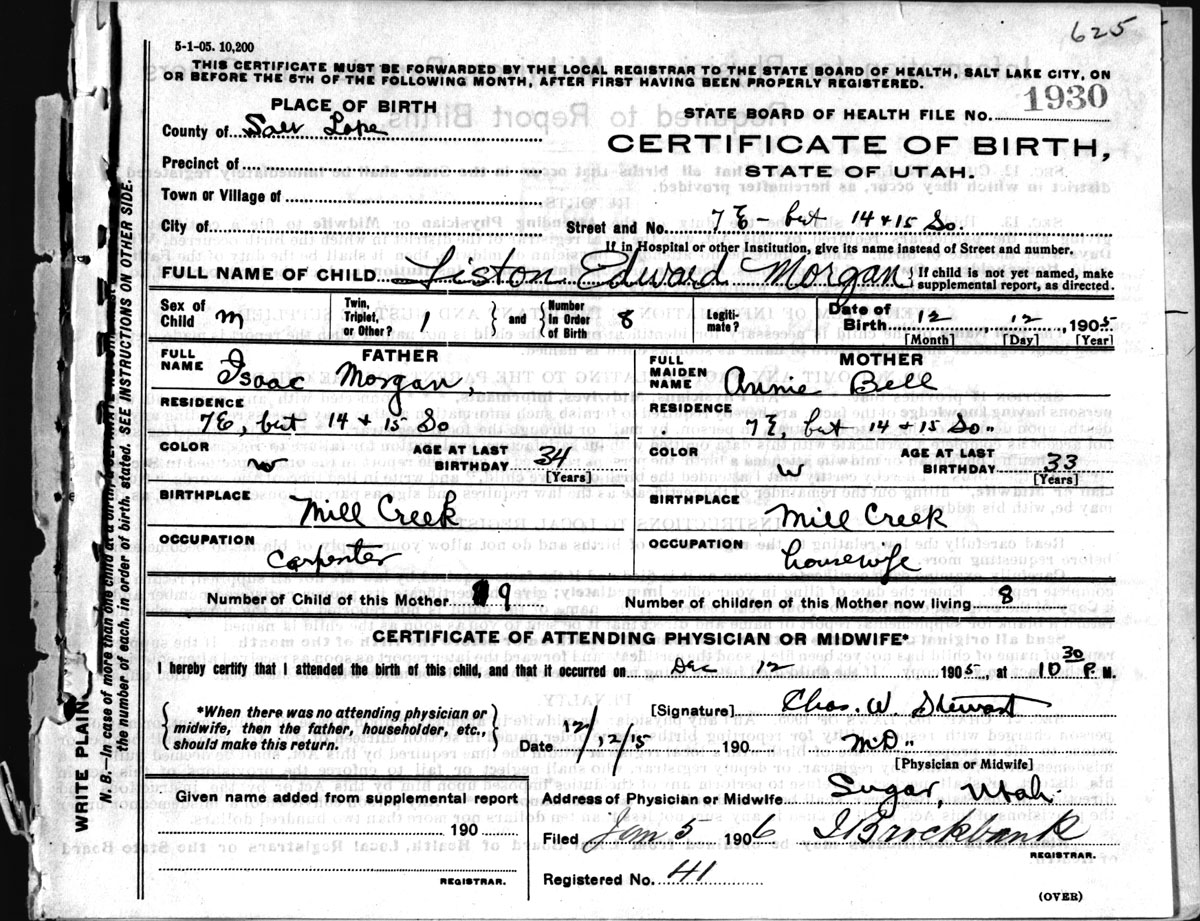 625
5-1-05. 10,200
THIS CERTIFICATE MUST BE FORWARDED BY THE LOCAL REGISTRAR TO THE STATE BOARD OF HEALTH, SALT LAKE CITY, ON
OR BEFORE THE 5TH OF THE FOLLOWING MONTH, AFTER FIRST HAVING BEEN PROPERLY REGISTERED.
PLACE OF BIRTH
STATE BOARD OF HEALTH FILE No. 1930
County of Salt Lake
CERTIFICATE OF BIRTH,
STATE OF UTAH.
Precinct of
Town or Village of
City of
Street and No. 7 E - bet 14 + 15 So.
If in Hospital or other Institution, give its name instead of Street and number.
FULL NAME OF CHILD Liston Edward Morgan { If child is not yet named, make supplemental report, as directed.
Sex of Child m Twin, Triplet, or Other? 1 { and } Number In Order of Birth 8 Legiti- mate? Date of Birth 12, 12, 1905
[Month] [Day] [Year]
FATHER
FULL NAME Isaac Morgan,
RESIDENCE
7 E, bet 14 + 15 So
COLOR w AGE AT LAST BIRTHDAY 34
[Years]
BIRTHPLACE
Mill Creek
OCCUPATION
Carpenter
MOTHER
FULL MAIDEN NAME Annie Bell
RESIDENCE
7 E, bet 14 + 15 So..
COLOR w AGE AT LAST BIRTHDAY 33
[Years]
BIRTHPLACE
Mill Creek
OCCUPATION
housewife
Number of Child of this Mother 9 Number of children of this Mother now living 8
CERTIFICATE OF ATTENDING PHYSICIAN OR MIDWIFE*
I hereby certify that I attended the birth of this child, and that it occurred on Dec 12 1905, at 10 30 P. M.
{ *When there was no attending physician or midwife, then the father, householder, etc., should make this return. }
[Signature] Chas. W. Stewart
Date 12/12/15 190 M.D.
[Physician or Midwife]
Given name added from supplemental report
190
REGISTRAR.
Address of Physician or Midwife Sugar, Utah.
Filed Jan 5 1906 J Brockbank
REGISTRAR.
Registered No. 41
(OVER)
WRITE PLAIN
N. B.—In case of more than one child at a birth
the number of each, in order of birth, stated. SEE INSTRUCTIONS ON OTHER SIDE.